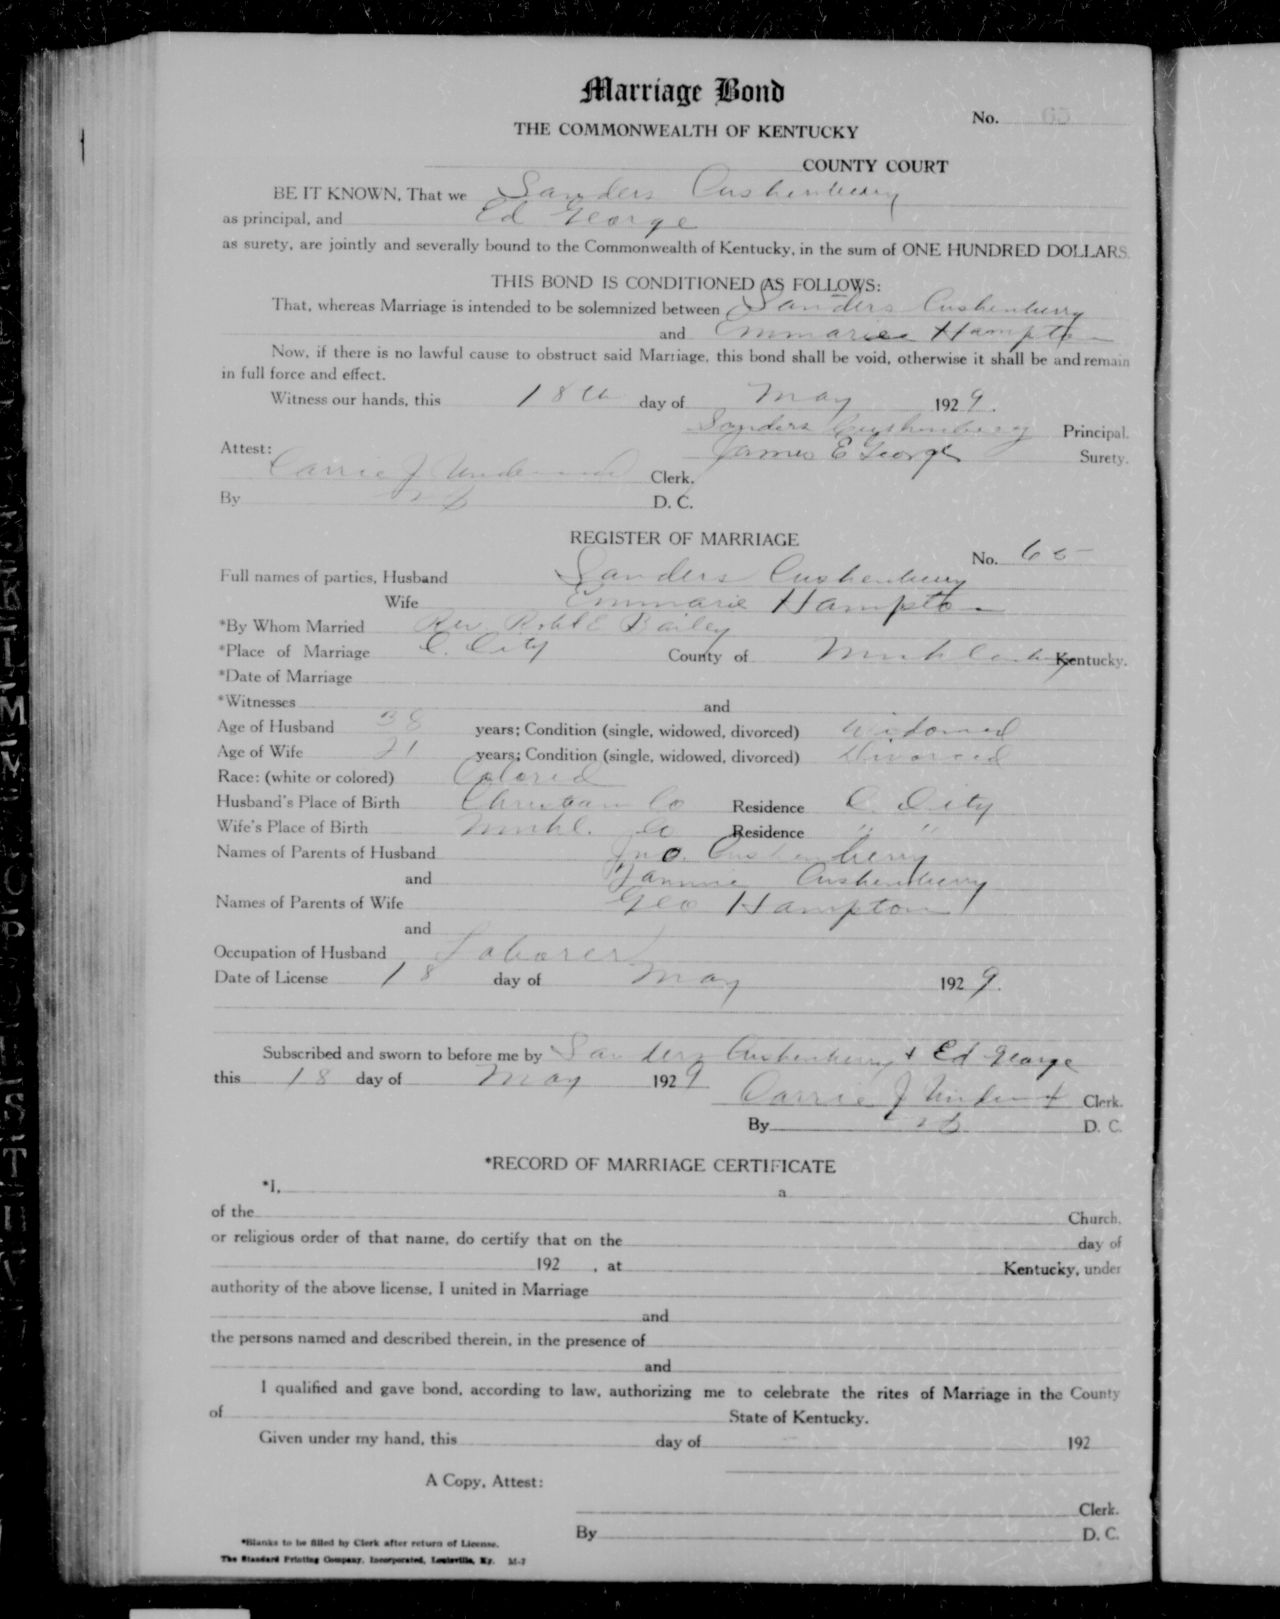 Marriage Bond
No. 65
THE COMMONWEALTH OF KENTUCKY
COUNTY COURT
BE IT KNOWN, That we Sanders Cushenberry
as principal, and Ed George
as surety, are jointly and severally bound to the Commonwealth of Kentucky, in the sum of ONE HUNDRED DOLLARS.
THIS BOND IS CONDITIONED AS FOLLOWS:
That, whereas Marriage is intended to be solemnized between Sanders Cushenberry
and Emmarie Hampton
Now, if there is no lawful cause to obstruct said Marriage, this bond shall be void, otherwise it shall be and remain
in full force and effect.
Witness our hands, this 18th day of May 1929.
Sanders Cushenberry Principal.
Attest: James E George Surety.
Carrie J Clerk.
By D. C.
REGISTER OF MARRIAGE
No. 65
Full names of parties, Husband Sanders Cushenberry
Wife Emmarie Hampton
*By Whom Married Rev. Robt E Bailey
*Place of Marriage C. City County of Muhlenberg Kentucky.
*Date of Marriage
*Witnesses and
Age of Husband 38 years; Condition (single, widowed, divorced) Widowed
Age of Wife 21 years; Condition (single, widowed, divorced) Divorced
Race: (white or colored) Colored
Husband's Place of Birth Christian Co Residence C. City
Wife's Place of Birth Muhl. Co Residence " "
Names of Parents of Husband Jno. Cushenberry
and Fannie Cushenberry
Names of Parents of Wife Geo Hampton
and
Occupation of Husband Laborer
Date of License 18 day of May 1929.
Subscribed and sworn to before me by Sanders Cushenberry + Ed George
this 18 day of May 1929
Carrie J Clerk.
By D. C.
*RECORD OF MARRIAGE CERTIFICATE
*I, a
of the Church,
or religious order of that name, do certify that on the day of
192 , at Kentucky, under
authority of the above license, I united in Marriage
and
the persons named and described therein, in the presence of
and
I qualified and gave bond, according to law, authorizing me to celebrate the rites of Marriage in the County
of State of Kentucky.
Given under my hand, this day of 192
A Copy, Attest:
Clerk.
By D. C.
*Blanks to be filled by Clerk after return of License.
The Standard Printing Company, Incorporated, Louisville, Ky. M-7